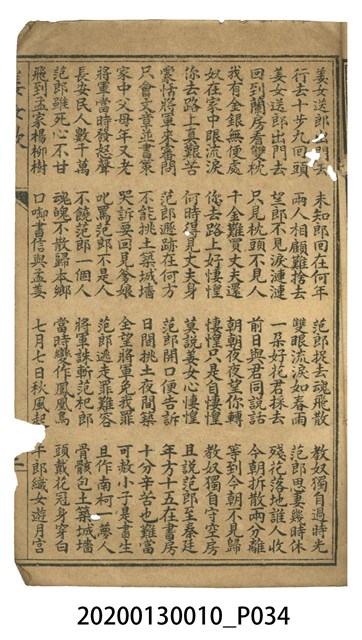 姜女送郎門去 未知郎回在何年 范郎捉去魂飛散 教奴獨自過時光
行去十步九回頭 兩人相顧難捨去 雙眼流淚如春雨 范郎思妻幾時休
姜女送郎出門去 望郎不見淚漣漣 一朶好花君採去 殘花落地誰人收
回到蘭房看雙枕 只見枕頭不見人 前日與君同說話 今朝拆散兩分離
我有金銀無使處 千金難買丈夫還 朝朝夜夜望你轉 等到今朝不見歸
奴在家中眼流淚 你去路上好悽惶 悽惶只是自悽惶 教奴獨自守空房
你去路上真艱苦 何時得見丈夫身 莫說姜女心悽惶 且說范郎至秦廷
蒙恬將軍來審問 范郎跡在何方 范郎開口便告訴 年方十五在書房
只會文章並書業 不能挑土築城墻 日間挑土夜間築 十分辛苦也難當
家中父母年又老 哭訴要回見爹娘 全望將軍免我罪 可赦小子是書生
將軍當時發怒聲 叱罵范郎不是人 范郎逃走罪難容 且作南柯一夢人
長安民人數千萬 不饒范郎一個人 將軍誅斬范杞郎 骨骸包土築城墻
范郎雖死心不甘 魂魄不散歸本鄉 當時變作鳳凰鳥 頭戴花冠身穿白
飛到孟家楊柳樹 口啣書信與孟姜 七月七日秋風起 年郎織女遊月宮
姜女
20200130010_P034